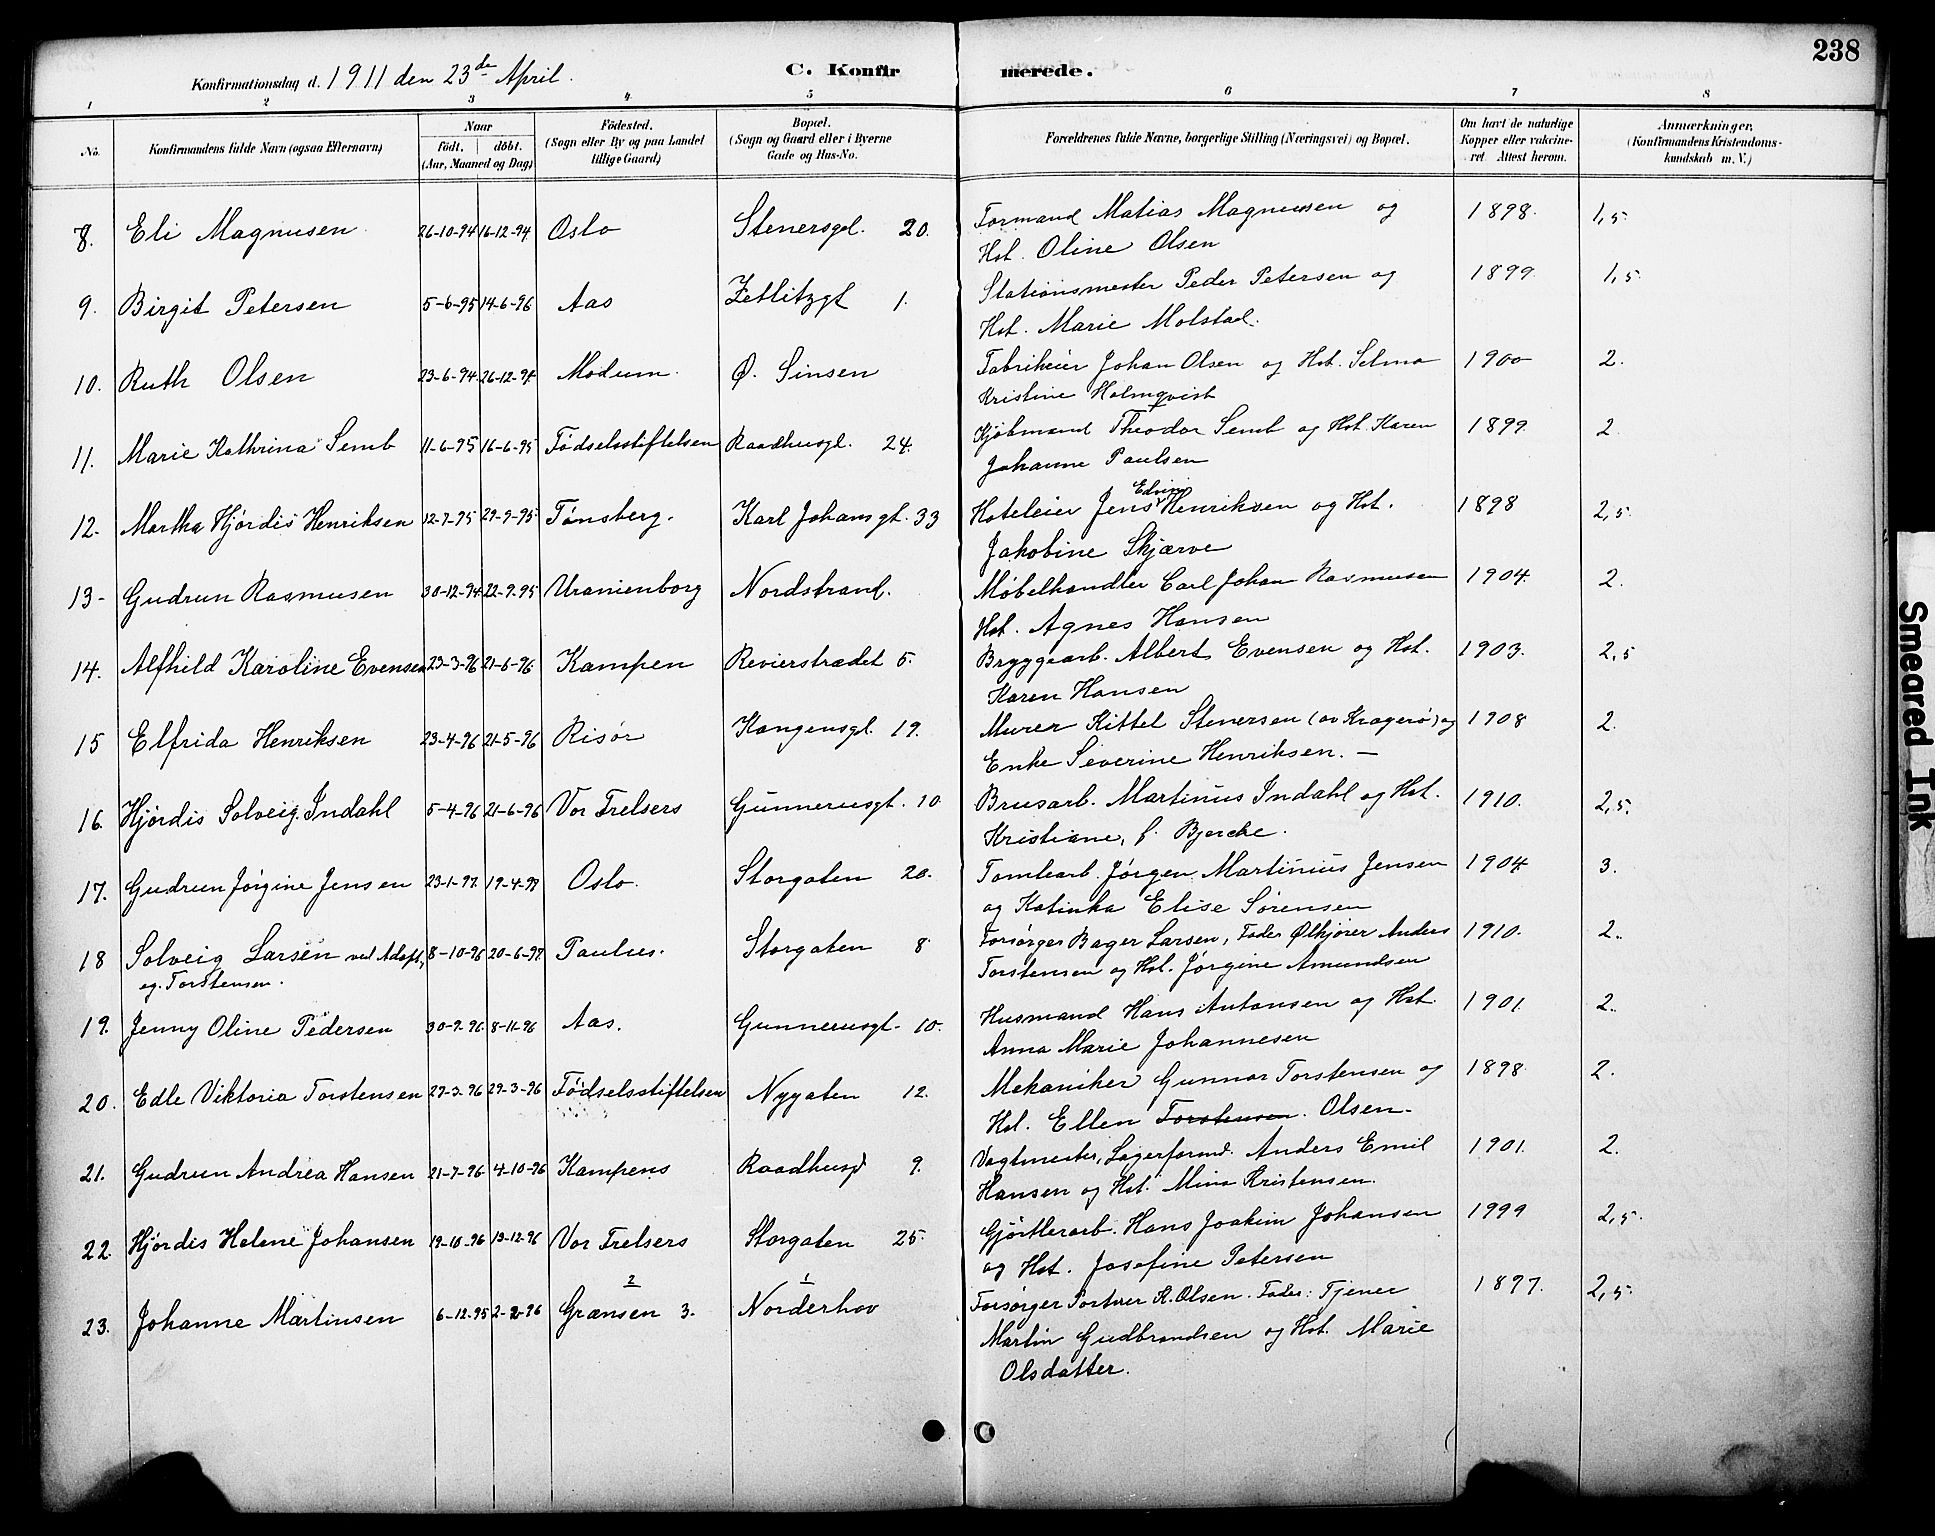 238
Konfirmationsdag d. 1911 den 23de April. C. Konfirmerede.
1 2 3 4 5 6 7 8
No. Konfirmandens fulde Navn (ogsaa Efternavn) Naar født. døbt. (Aar, Maaned og Dag) Fødested. (Sogn eller By og paa Landet tillige Gaard) Bopæl. (Sogn og Gaard eller i Byerne Gade og Hus-No. Forældrenes fulde Navne, borgerlige Stilling (Næringsvei) og Bopæl. Om havt de naturlige Kopper eller vakcineret Attest herom. Anmærkninger. (Konfirmandens Kristendomskundskab m. V.)
8. Eli Magnusen 26-10-94 16-12-94 Oslo Stenersgd. 20. Formand Matias Magnussen og 1898. 1,5
Hst. Oline Olsen
9. Birgit Petersen 5-6-95 14-6-96 Aas Zetlitzgt 1. Stationsmester Peder Petersen og 1899 1,5
Hst. Marie Molstad.
10. Ruth Olsen 23-6-94 26-12-94 Modum. Ø. Sinsen Fabrikeier Johan Olsen og Hst. Selma 1900 2.
Kristine Holmqvist
11. Marie Kathrina Semb 11-6-95 16-6-95 Fødselsstiftelsen Raadhusgt. 24. Kjøbmand Theodor Semb og Hst. Karen 1899 2.
Johanne Paulsen
12. Martha Hjørdis Henriksen 12-7-95 29-9-95 Tønsberg. Karl Johansgt. 33 Hoteleier Jens Edvin Henriksen og Hst. 1898 2,5.
Jakobine Skjærve
13- Gudrun Rasmusen 30-12-94 22-9-95 Uranienborg Nordstrand. Møbelhandler Carl Johan Rasmusen 1904. 2.
Hst. Agnes Hansen
14. Alfhild Karoline Evensen 23-3-96 21-6-96 Kampen Revierstrædet 5. Bryggearb. Albert Evensen og Hst. 1903. 2,5
Karen Hansen
15 Elfrida Henriksen 23-4-96 21-5-96 Risør Kongensgt. 19. Murer Kittel Stenersen (av Kragerø) og 1908 2.
Enke Severine Henriksen. —
16. Hjørdis Solveig Indahl 5-4-96 21-6-96 Vor Frelsers Gunnerusgt. 10. Brusarb. Martinus Indahl og Hst. 1910. 2,5.
Kristiane, f. Bjerche.
17. Gudrun Jørgine Jensen 23-1-97. 19-4-97 Oslo. Storgaten 20. Tomtearb. Jørgen Martinius Jensen 1904 3.
og Katinka Elise Sørensen
18 Solveig Larsen ved Adopt, 8-10-96 20-6-97. Paulus. Storgaten 8 Forsørger Bager Larsen, Fader Ølkjører Anders 1910. 2..
eg. Torstensen. Torstensen og Hst. Jørgine Amundsen
19. Jenny Oline Pedersen 30-9-96 8-11-96 Aas. Gunnerusgt. 10. Husmand Hans Antonsen og Hst. 1901. 2..
Anna Marie Johannesen
20. Edle Viktoria Torstensen 27-3-96 29-3-96 Fødselsstiftelsen Nygaten 12. Mekaniker Gunnar Torstensen og 1898 2.
Hst. Ellen Torstensen. Olsen.
21. Gudrun Andrea Hansen 21-7-96 4-10-96 Kampens Raadhusgt 9. Vagtmester, Lagerformd. Anders Emil 1901. 2.
Hansen og Hst. Mina Kristensen.
22 Hjørdis Helene Johansen 19-10-96 13-12-96 Vor Frelsers Storgaten 25. Gjørtlerarb. Hans Joakim Johansen 1999 2,5.
og Hst. Josefine Petersen
2 1
23. Johanne Martinsen 6-12-95 2-2-96 Grænsen 3. Norderhov Forsørger Portner R. Olsen. Fader: Tjener 1897. 2,5.
Martin Gudbrandsen og Hst. Marie
Olsdatter.
Smeared Ink